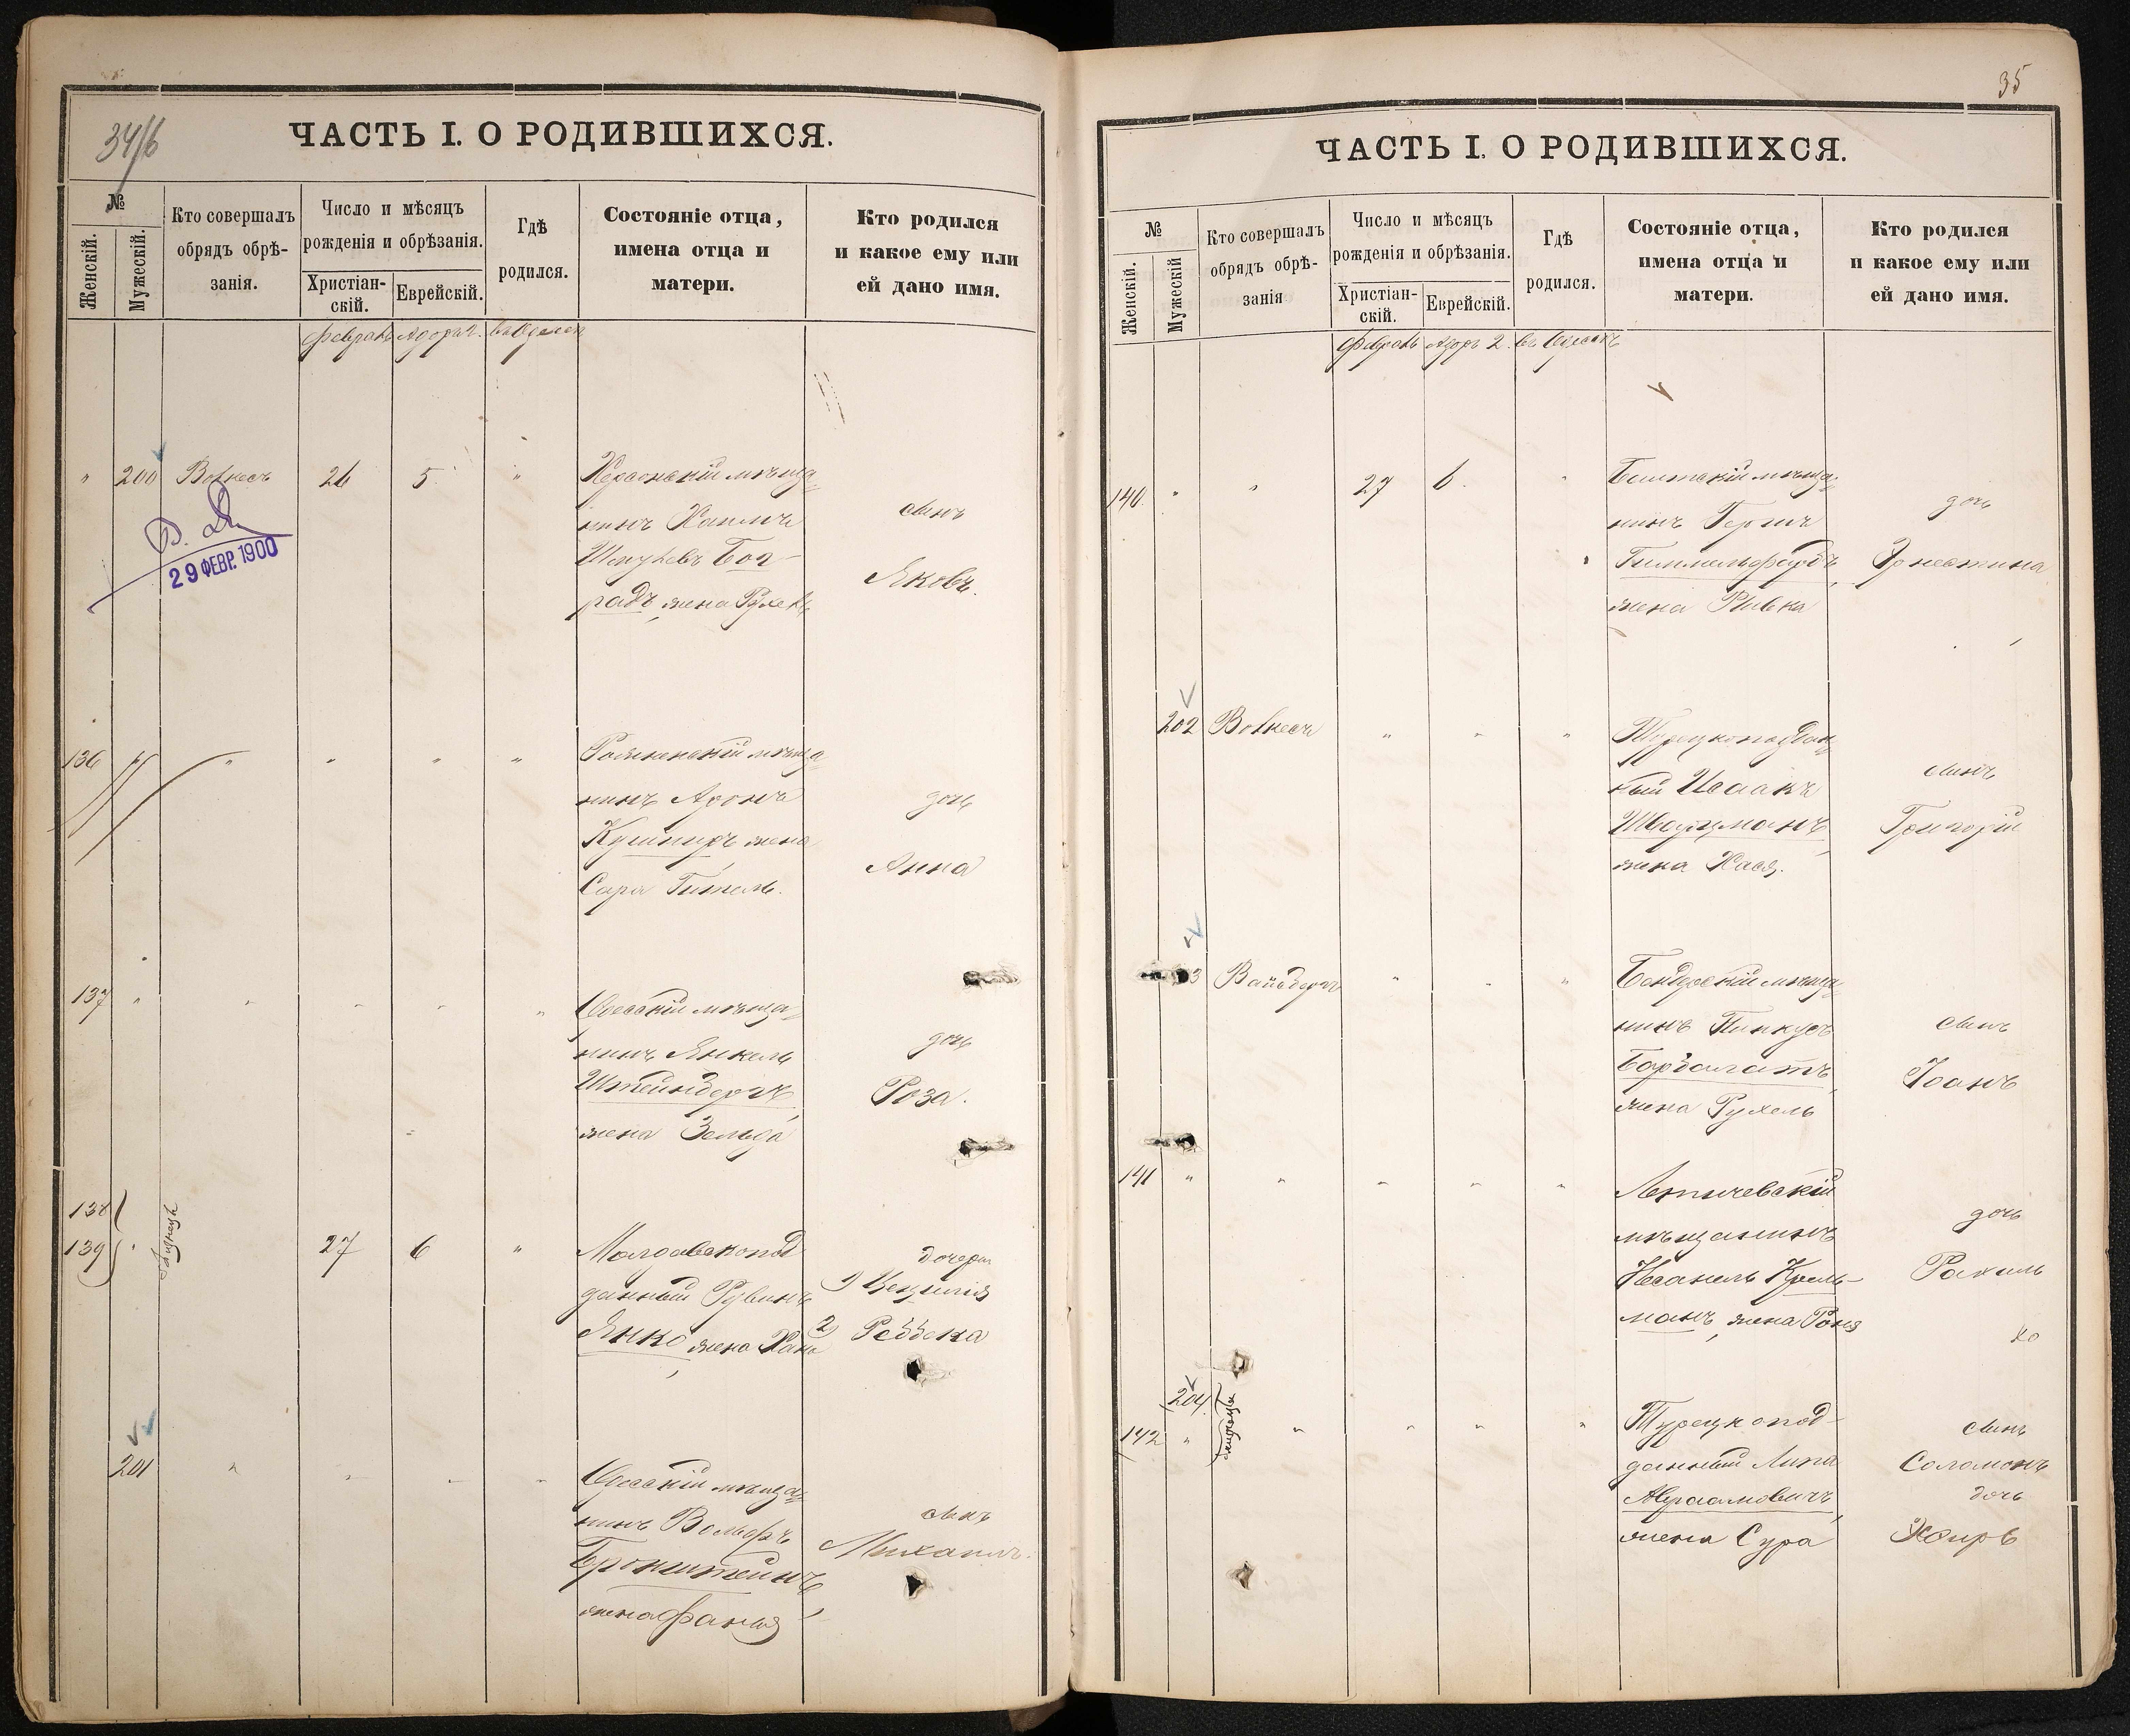 34/б
ЧАСТЬ I. О РОДИВШИХСЯ.
№
Женскій.
Мужескій.
Кто совершалъ
обрядъ обрѣ-
занія.
Число и мѣсяцъ
рожденія и обрѣзанія.
Христіан-
скій.
Еврейскій.
Гдѣ
родился.
Состояніе отца,
имена отца и
матери.
Кто родился
и какое ему или
ей дано имя.
февраль Адоръ 2. въ Одессѣ
" 200 Вовнесъ 26 5 " Херсонскій мѣща=
нинъ Хаимъ
Бог-
радъ, жена Рухель
сынъ
Яковъ.
29 ФЕВР. 1900
136 " " " " "
мѣща=
нинъ Аронъ
Кушниръ жена
Сара Гитель.
дочь
Анна
137 " " " " " Одесскій мѣща=
нинъ Янкель
Штейнбергъ,
жена Зельда
дочь
Роза.
138
139 " близнецы 27 6 " Молдавскопод
данный Рувинъ
Янко, жена Хана
дочери
1) Цецилія
2) Ребека
201 " " " " Одесскій мѣща=
нинъ Вольфъ
Бронштейнъ,
жена Фаня
сынъ
Михаилъ.
35
ЧАСТЬ I. О РОДИВШИХСЯ.
№
Женскій.
Мужескій
Кто совершалъ
обрядъ обрѣ-
занія
Число и мѣсяцъ
рожденія и обрѣзанія.
Христіан-
скій.
Еврейскій.
Гдѣ
родился.
Состояніе отца,
имена отца и
матери.
Кто родился
и какое ему или
ей дано имя.
февраль Адоръ 2. въ Одессѣ
140 " " 27 6. " мѣща=
нинъ Гершъ
Гиммельфарбъ,
жена Ривка
дочь
Эрнестина
202 Вовнесъ " " " Турецкоподдан=
ный Исаакъ
Шварцманъ,
жена Хася.
сынъ
Григорій
3 Вайсбергъ " " " Бендерскій мѣща=
нинъ Пинкусъ
Барбалатъ,
жена Рухель
сынъ
Іоанъ
141 " " " " " Летичевскій
мѣщанинъ
Крель-
манъ, жена Роня
дочь
Рахиль
204
142 " близнецы " " " " Турецкопод-
данный Липа
Авраамовичъ,
жена Сура
сынъ
Соломонъ
дочь
Эсѳирь